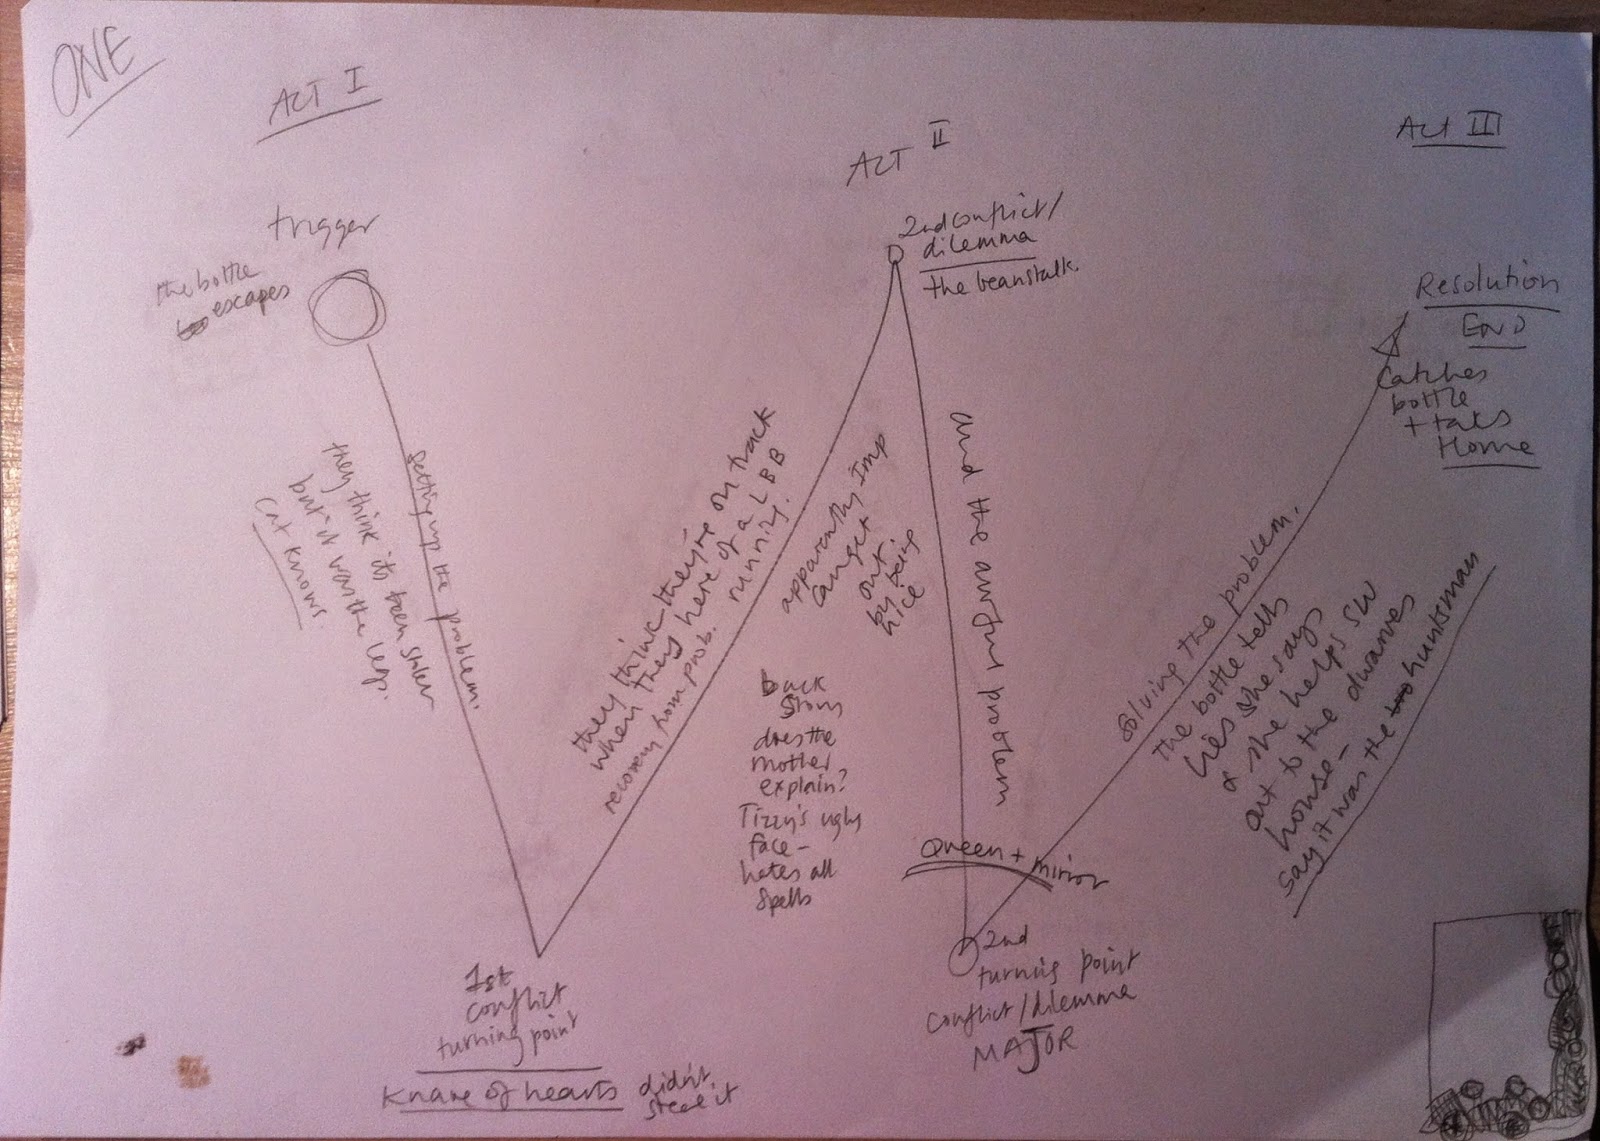 ONE
ACT I
trigger
the bottle
escapes
setting up the problem.
they think its been stolen
but it was the legs.
cat knows.
1st
conflict
turning point
Knave of hearts didn't
steal it
they think they're on track
when they here of a LBB
running.
recovery from prob.
apparently Imp
can get
out
by being
nice
back
story
does the
mother
explain?
Tizzy's ugly
face –
hates all
spells
ACT II
2nd conflict/
dilemma
the beanstalk.
and the awful problem
Queen + mirror
2nd
turning point
conflict/dilemma
MAJOR
solving the problem.
the bottle tells
lies she says
& she helps SW
out to the dwarves
house –
say it was the huntsman
Act III
Resolution
END
Catches
bottle
+ takes
Home